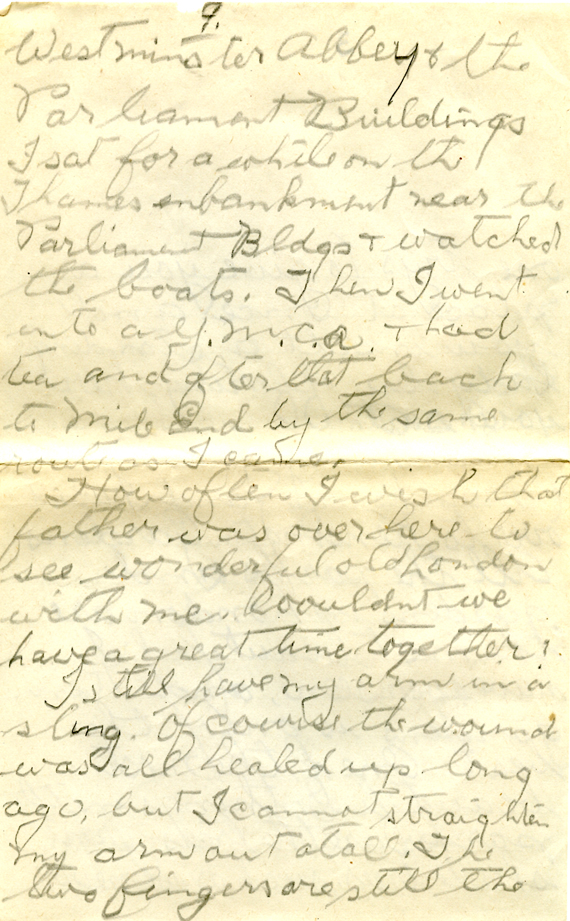 9.
Westminster Abbey & the
Parliament Buildings
I sat for a while on the
Thames enbankment near the
Parliament Bldgs & watched
the boats. Then I went
into a Y.M.C.A. & had
tea and after that back
to Mile End by the same
route as I came.
How often I wish that
father was over here to
see wonderful old London
with me. Wouldnt we
have a great time together?
I still have my arm in a
sling. Of course the wound
was all healed up long
ago, but I cannot straighten
my arm out atall. The
two fingers are still the